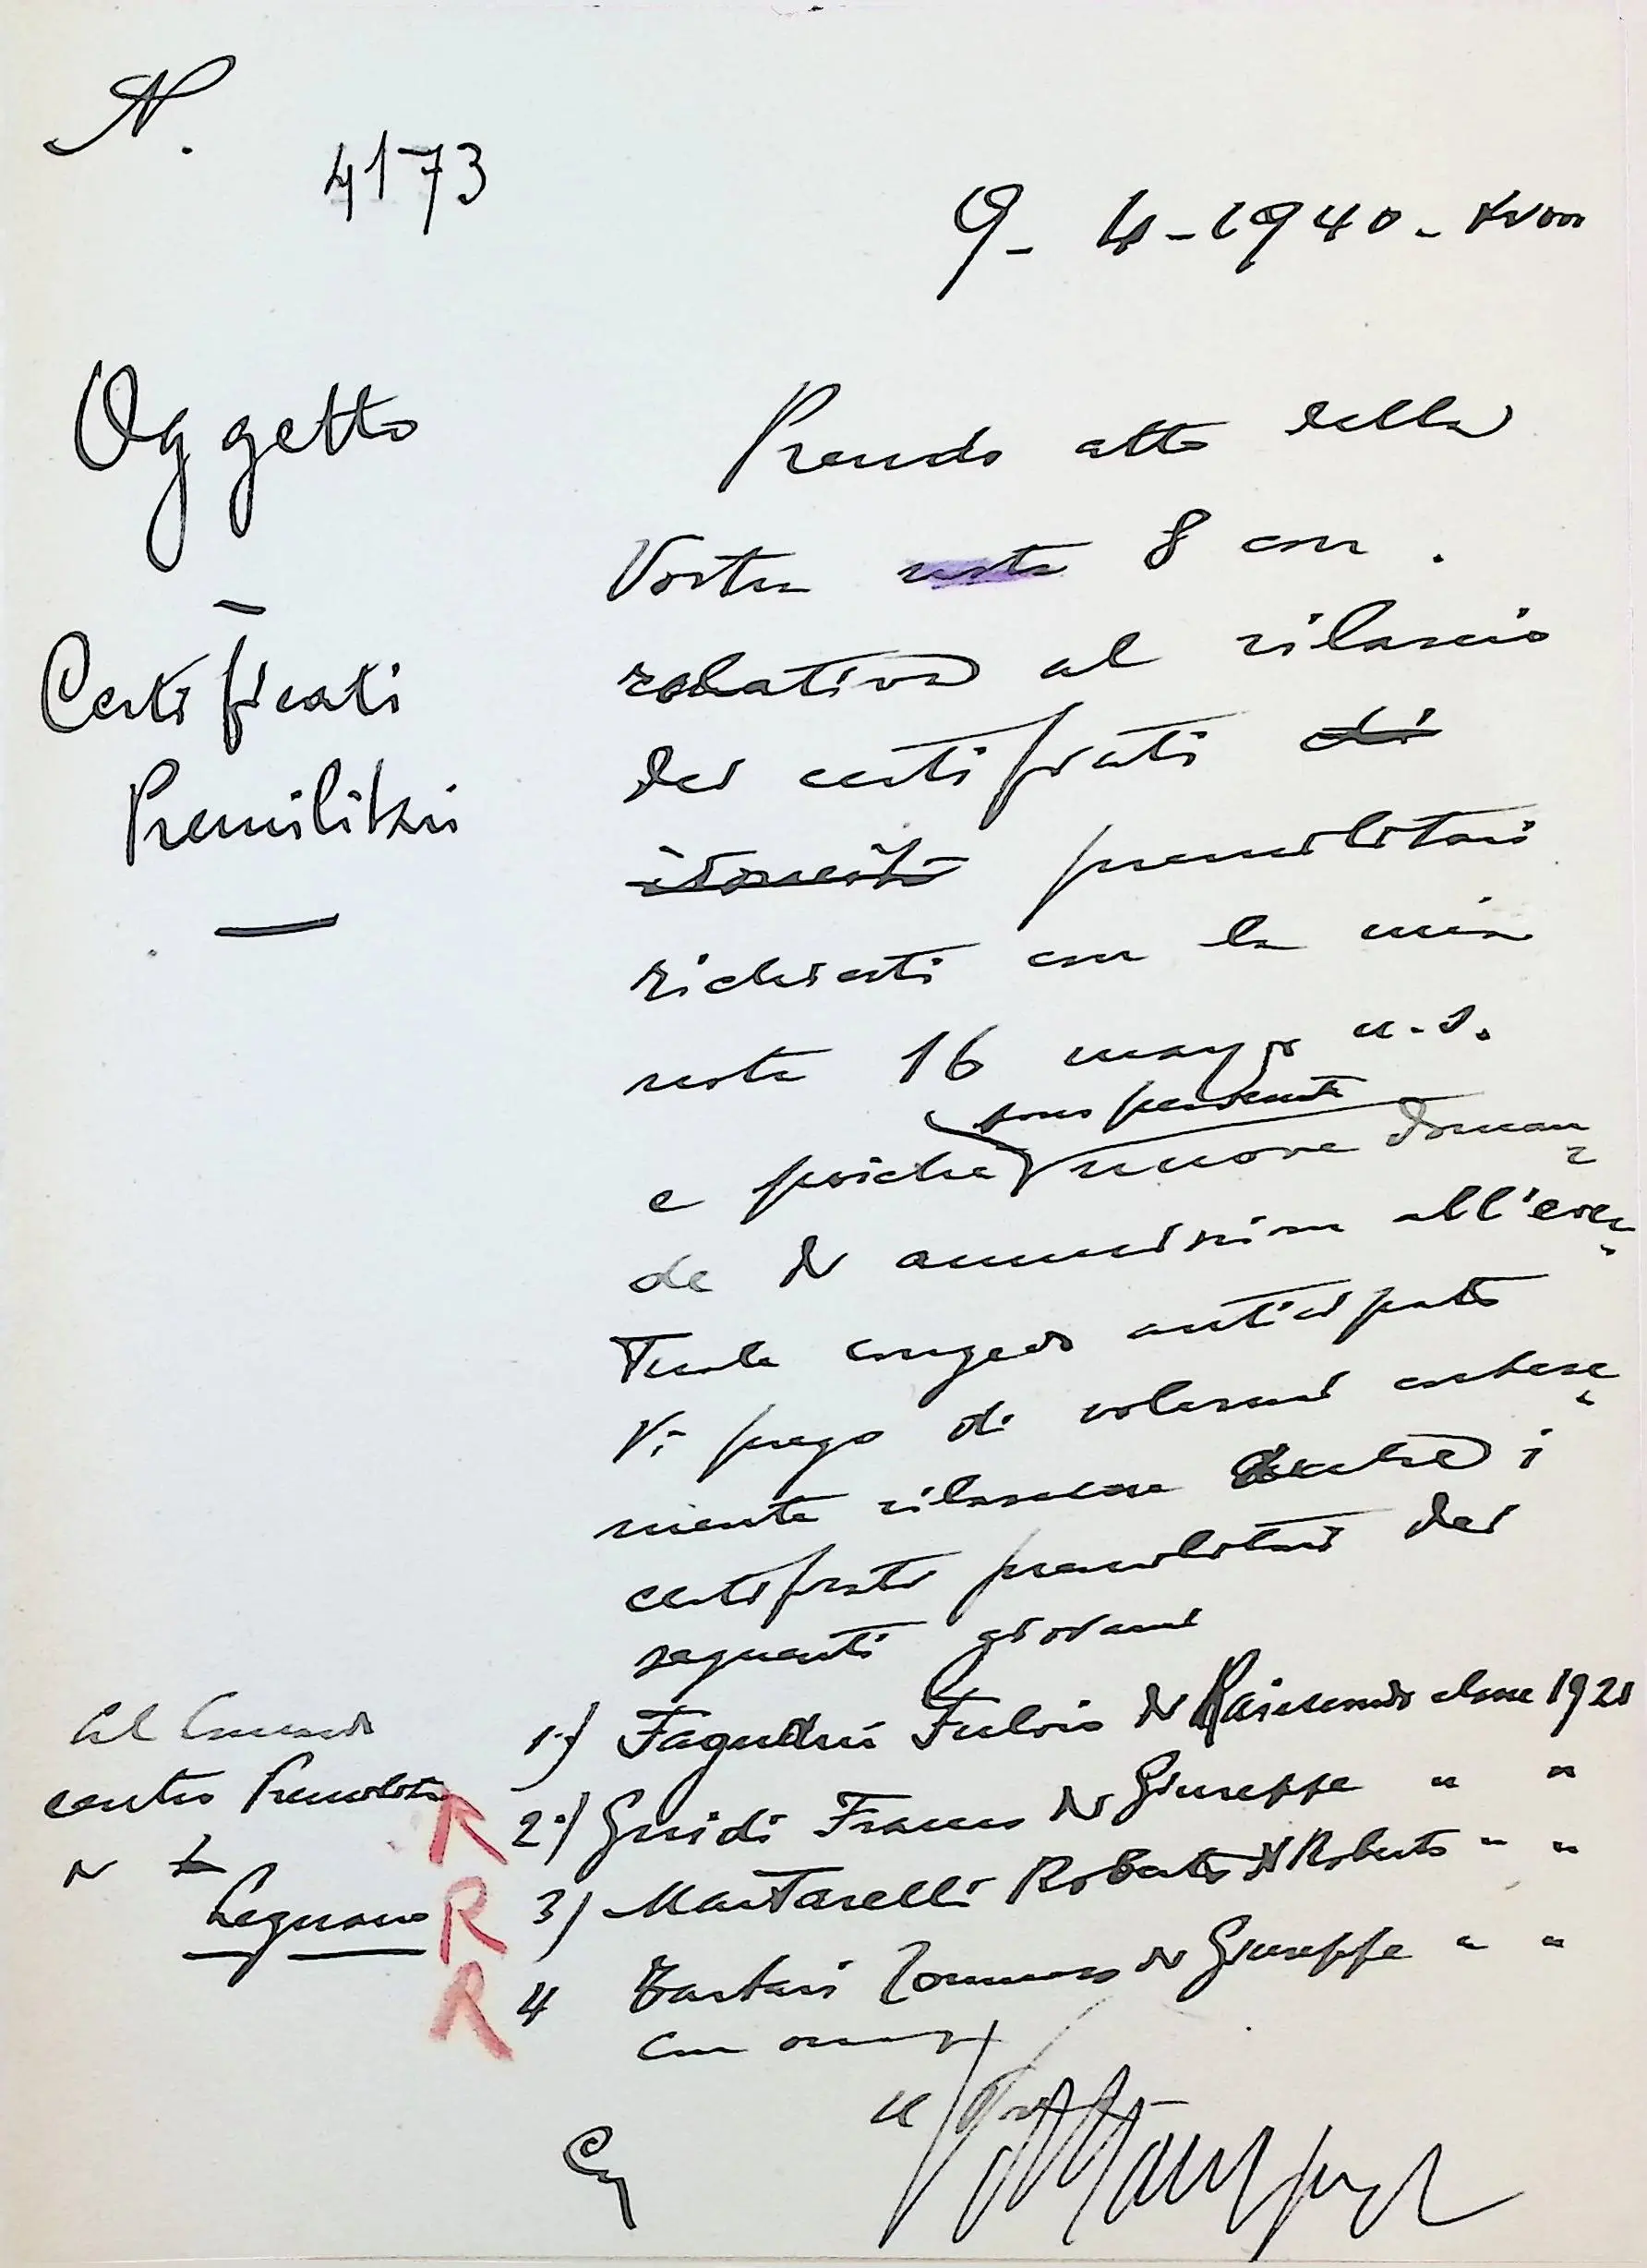 N.
4173
9-4-1940-XVIII
Oggetto
Certificati
Premilitari
Prendo atto della
Vostra nota 8 corr.
relativa al rilascio
dei certificati di
premilitari
richiesti con la mia
nota 16 marzo u.s.
sono pervenute
e poichè nuove doman
de di ammissione all'even
tuale congedo anticipato
Vi prego di volermi cortese
mente rilasciare anche i
certificati premilitari dei
seguenti giovani
1°) Fulvio di Raimondo classe 1920
2°) Guidi Franco di Giuseppe " "
3) Mantarelli Roberto di Roberto " "
4 Tommaso di Giuseppe " "
Con
Al Comando
centro Premilitare
di
Legnano
R
R
R
Il